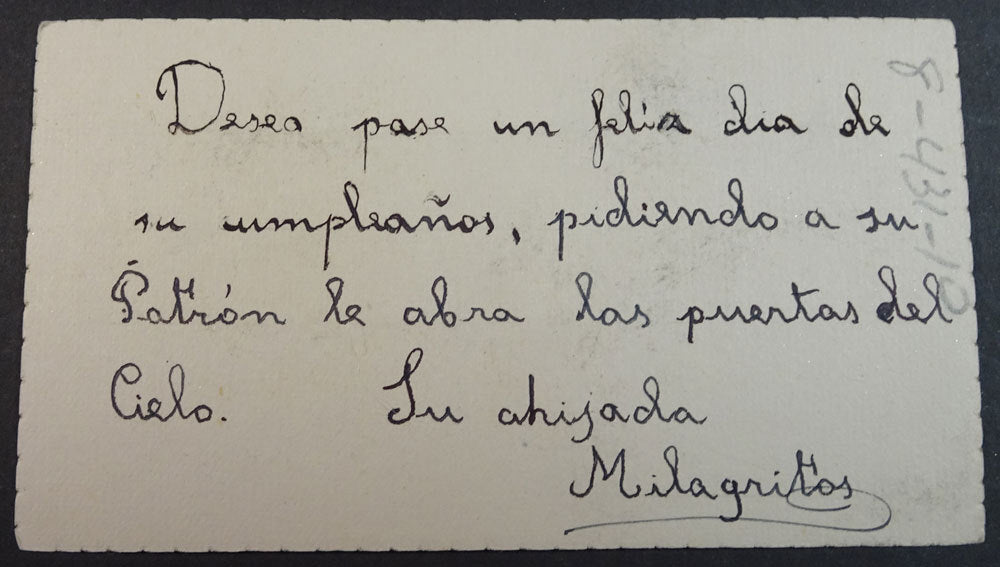 Deseo pase un feliz dia de
su cumpleaños, pidiendo a su
Patrón le abra las puertas del
Cielo. Su ahijada
Milagritos
8-431-10